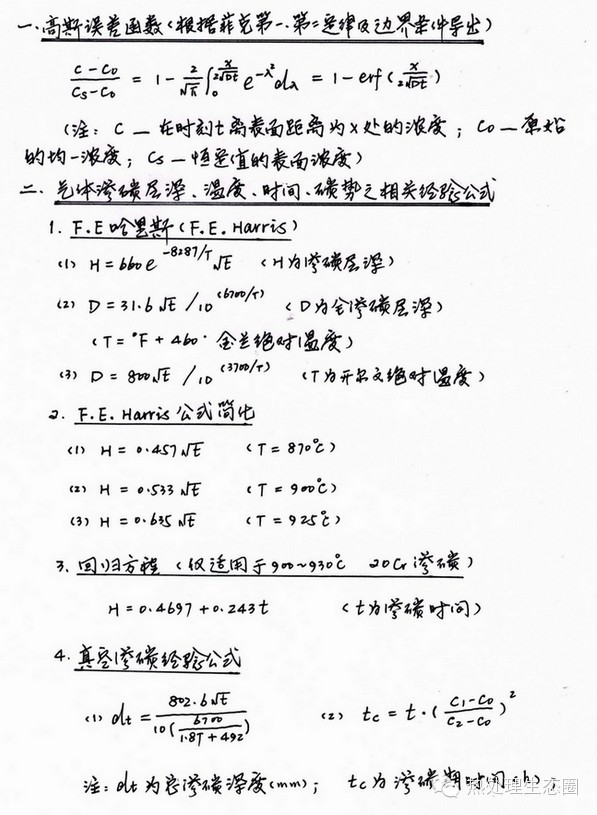 一.高斯误差函数(根据菲克第一.第二定律及边界条件导出)
(C-C₀)/(Cs-C₀) = 1 - (2/√π)∫₀^(x/(2√Dt)) e^(-λ²)dλ = 1-erf(x/(2√Dt))
(注: C — 在时刻t离表面距离为x处的浓度; C₀ — 原始
的均一浓度; Cs — 恒定值的表面浓度)
二. 气体渗碳层深、温度、时间、碳势之相关经验公式
1. F.E哈里斯(F.E.Harris)
(1) H = 660e^(-8287/T)√t (H为渗碳层深)
(2) D = 31.6√t /10^(6700/T) (D为全渗碳层深)
(T = °F + 460° 金兰绝对温度)
(3) D = 800√t /10^(3700/T) (T为开尔文绝对温度)
2. F.E.Harris公式简化
(1) H = 0.457√t (T = 870℃)
(2) H = 0.533√t (T = 900℃)
(3) H = 0.635√t (T = 925℃)
3. 回归方程 (仅适用于900~930℃ 20Cr渗碳)
H = 0.4697+0.243t (t为渗碳时间)
4. 真空渗碳经验公式
(1) dt = 802.6√t / 10(6700/(1.8T+492)) (2) tc = t·((C₁-C₀)/(C₂-C₀))²
注: dt为总渗碳深度(mm); tc为渗碳期时间(h);
热处理生态圈